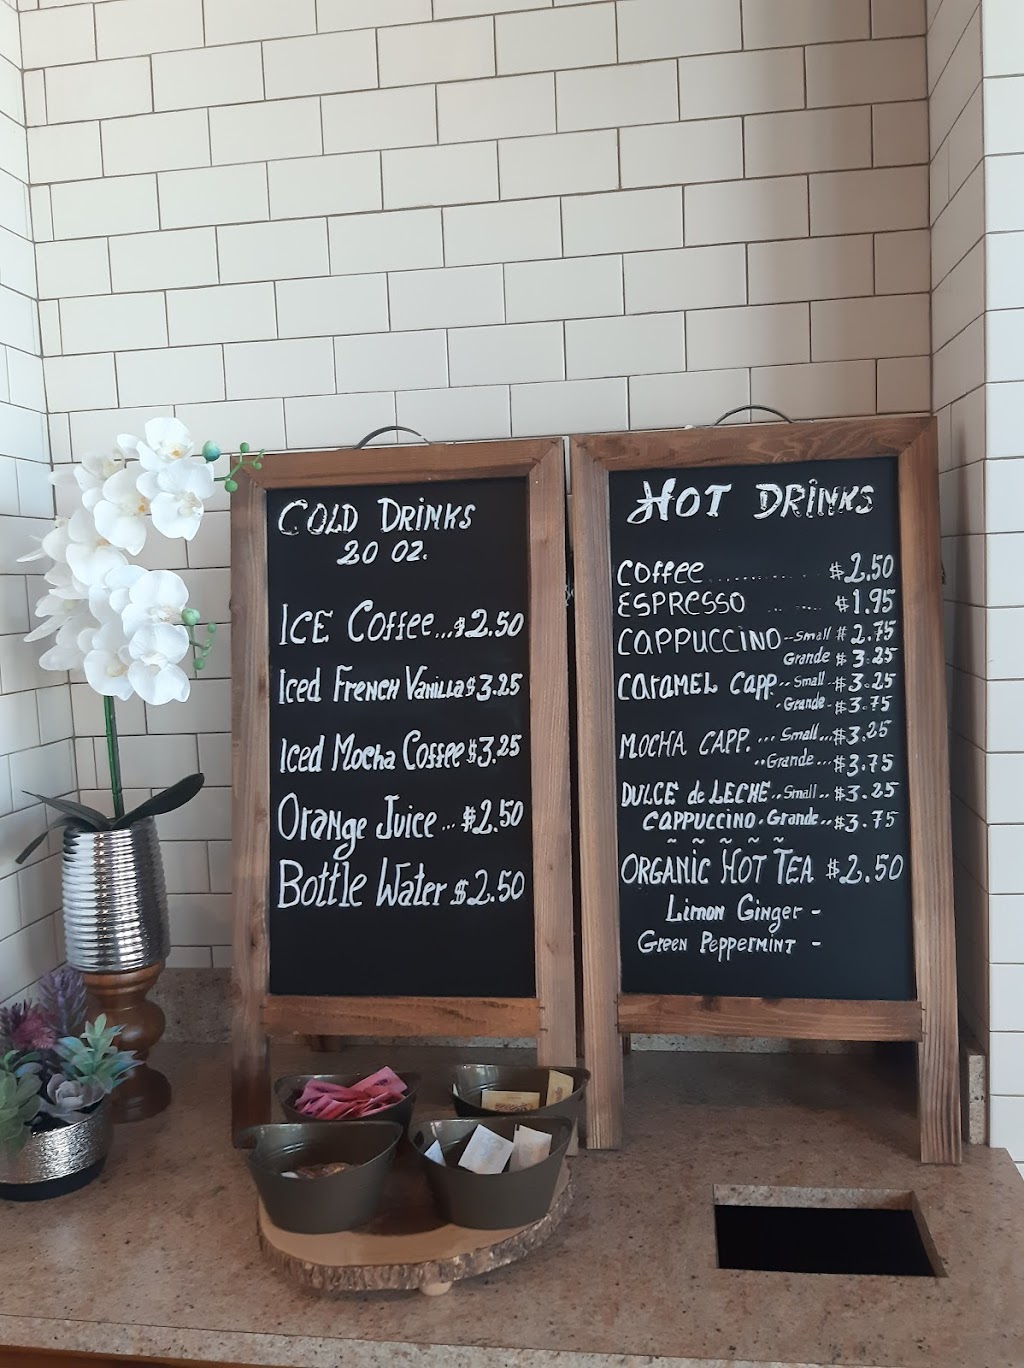 COLD DRINKS
20 OZ.
ICE COFFEE...$2.50
Iced FRENCH VANILLA $3.25
Iced Mocha Coffee $3.25
ORANGE JUICE...$2.50
Bottle Water $2.50
HOT DRINKS
COFFEE............$2.50
ESPRESSO ......$1.95
CAPPUCCINO--Small $2.75
Grande $3.25
CARAMEL CAPP.--Small-$3.25
-Grande-$3.75
MOCHA CAPP....Small...$3.25
..Grande...$3.75
DULCE de LECHE..Small..$3.25
CAPPUCCINO.Grande..$3.75
~ ~ ~ ~ ~
ORGANIC HOT TEA $2.50
Limon Ginger -
Green PEPPERMINT -